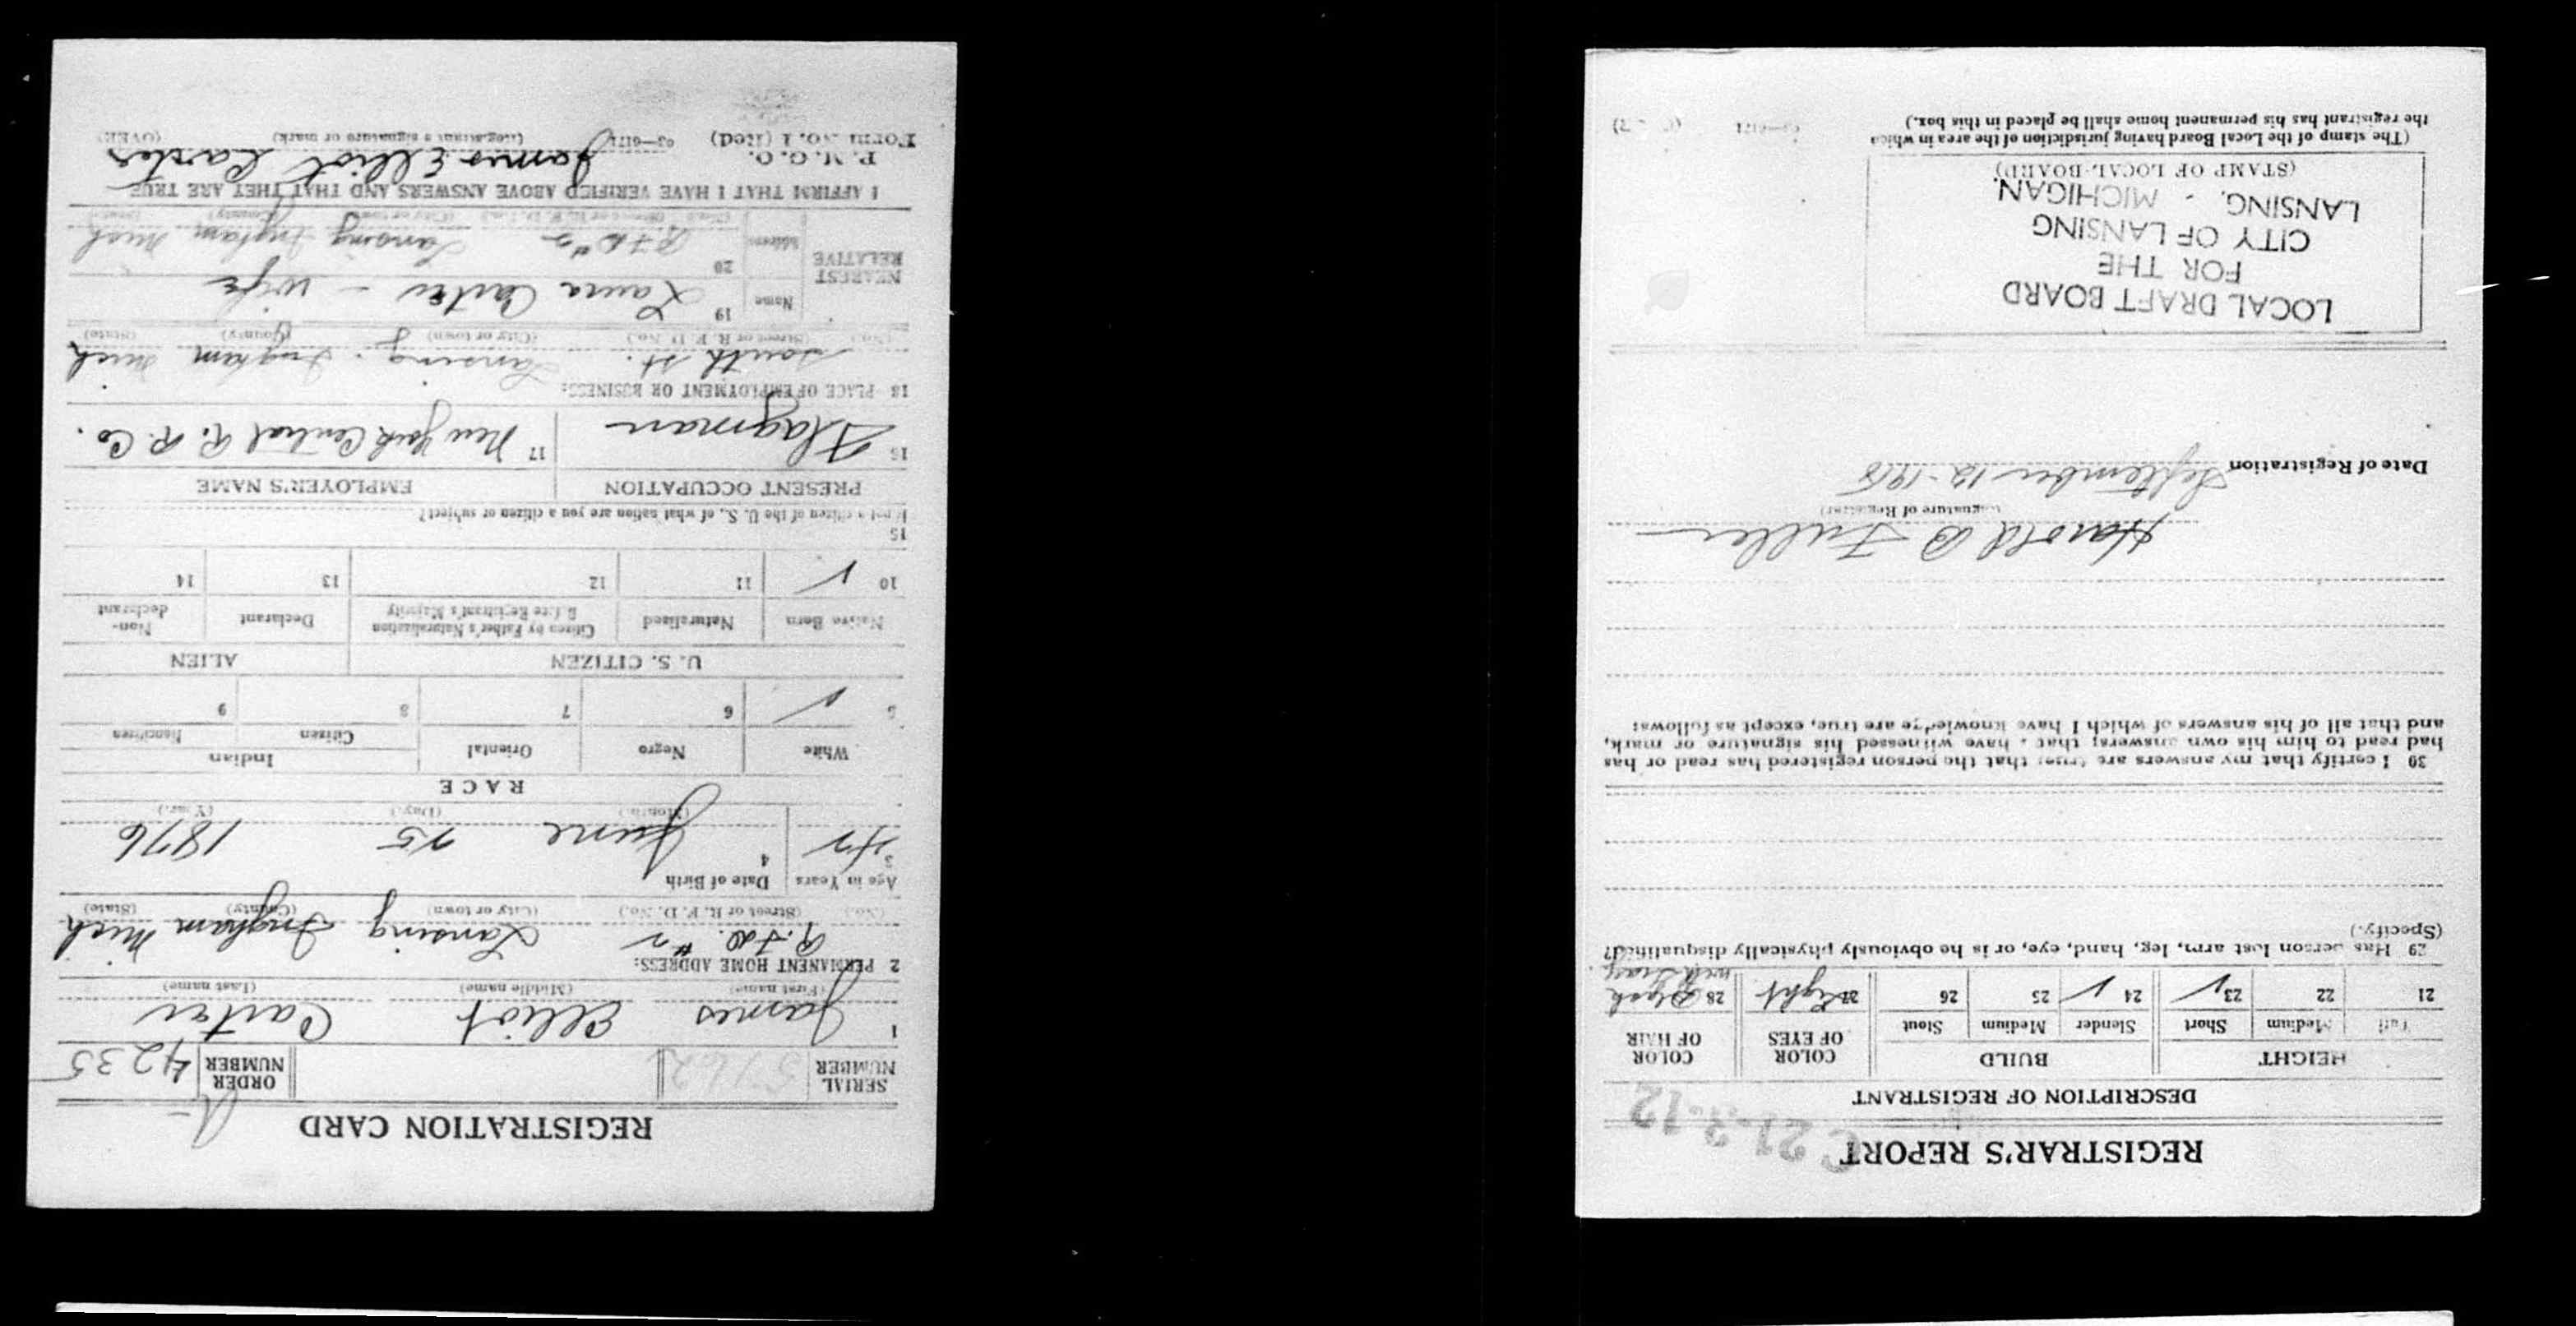 REGISTRATION CARD
SERIAL NUMBER 5762 ORDER NUMBER A 4235
1 James Elliot Carter
(First name) (Middle name) (Last name)
2 PERMANENT HOME ADDRESS:
R.F.D. #2 Lansing Ingham Mich
(No.) (Street or R. F. D. No.) (City or town) (County) (State)
Age in Years Date of Birth
3 42 4 June 25 1876
(Month.) (Day.) (Year.)
RACE
White Negro Oriental Indian
Citizen Noncitizen
5 ✓ 6 7 8 9
U. S. CITIZEN ALIEN
Native Born Naturalized Citizen by Father's Naturalization Before Registrant's Majority Declarant Non-declarant
10 ✓ 11 12 13 14
15
If not a citizen of the U. S., of what nation are you a citizen or subject?
PRESENT OCCUPATION EMPLOYER'S NAME
16 Flagman 17 New York Central R. R. Co.
18 PLACE OF EMPLOYMENT OR BUSINESS:
South St. Lansing Ingham Mich
(No.) (Street or R. F. D. No.) (City or town) (County) (State)
NEAREST RELATIVE
Name 19 Laura Carter - Wife
Address 20 R.F.D. #2 Lansing Ingham Mich
(No.) (Street or R. F. D. No.) (City or town) (County) (State)
I AFFIRM THAT I HAVE VERIFIED ABOVE ANSWERS AND THAT THEY ARE TRUE
P. M. G. O.
Form No. 1 (Red) 03—6171 James Elliot Carter
(Registrant's signature or mark) (OVER)
REGISTRAR'S REPORT
C 21-3-12
DESCRIPTION OF REGISTRANT
HEIGHT BUILD COLOR OF EYES COLOR OF HAIR
Tall Medium Short Slender Medium Stout
21 22 23 ✓ 24 ✓ 25 26 27 Light 28 Black
29 Has person lost arm, leg, hand, eye, or is he obviously physically disqualified?
(Specify.)
30 I certify that my answers are true; that the person registered has read or has
had read to him his own answers; that I have witnessed his signature or mark,
and that all of his answers of which I have knowledge are true, except as follows:
Harold B Fuller
(Signature of Registrar)
Date of Registration September 12-1918
LOCAL DRAFT BOARD
FOR THE
CITY OF LANSING
LANSING, - MICHIGAN.
(STAMP OF LOCAL BOARD)
(The stamp of the Local Board having jurisdiction of the area in which
the registrant has his permanent home shall be placed in this box.)
03—6171